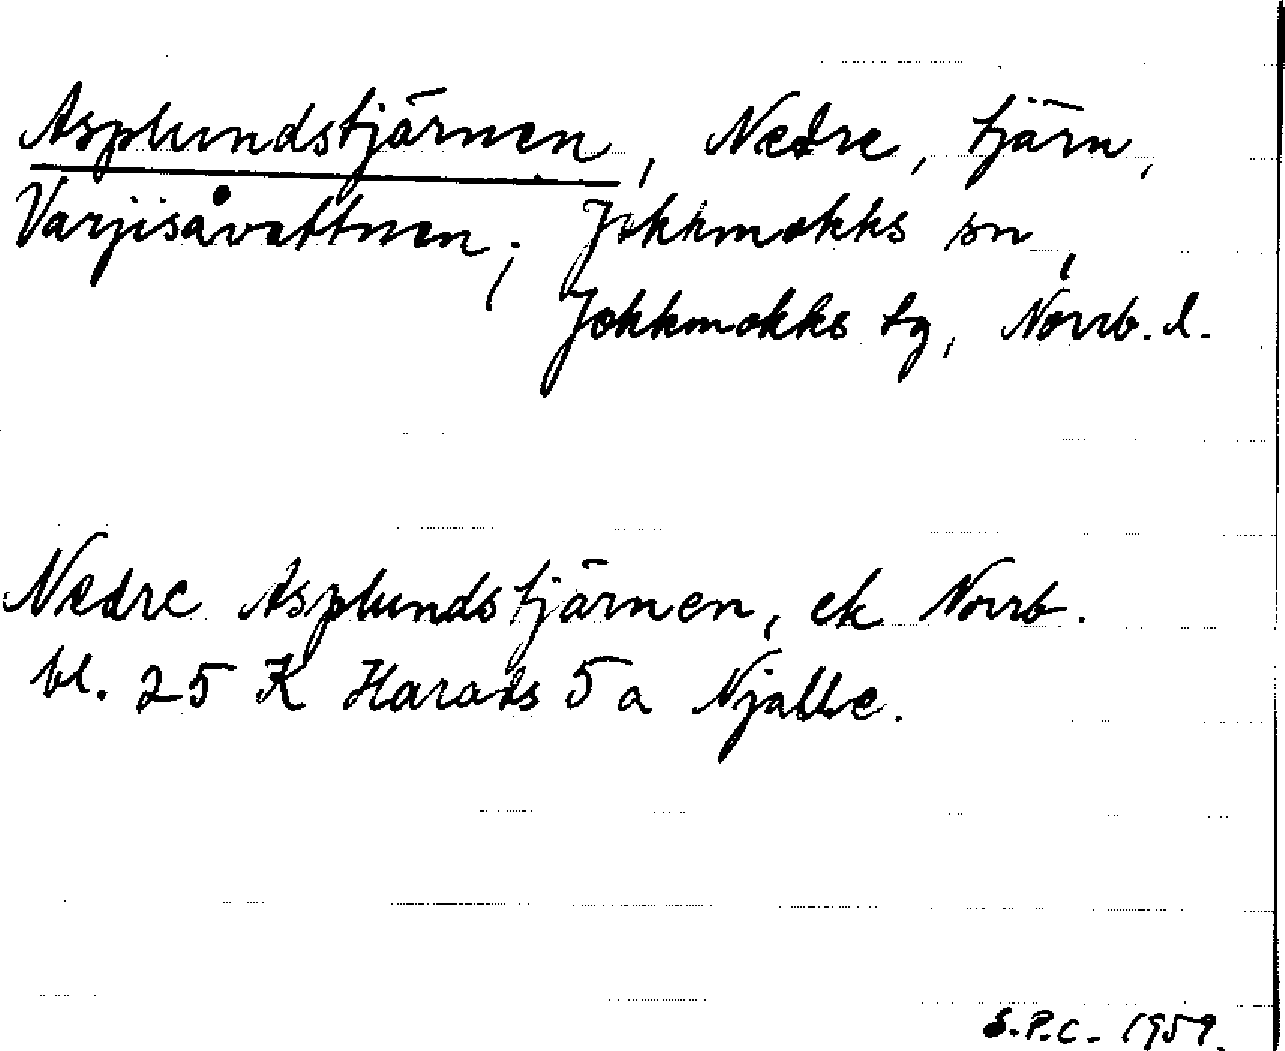 Asplundstjärnen, Nedre, tjärn,
Varjisåvattnen, Jokkmokks sn,
Jokkmokks tg, Norrb. l.
Nedre Asplundstjärnen, ek Norrb.
bl. 25 K Harads 5 a Njalle.
S.P.C. 1959.